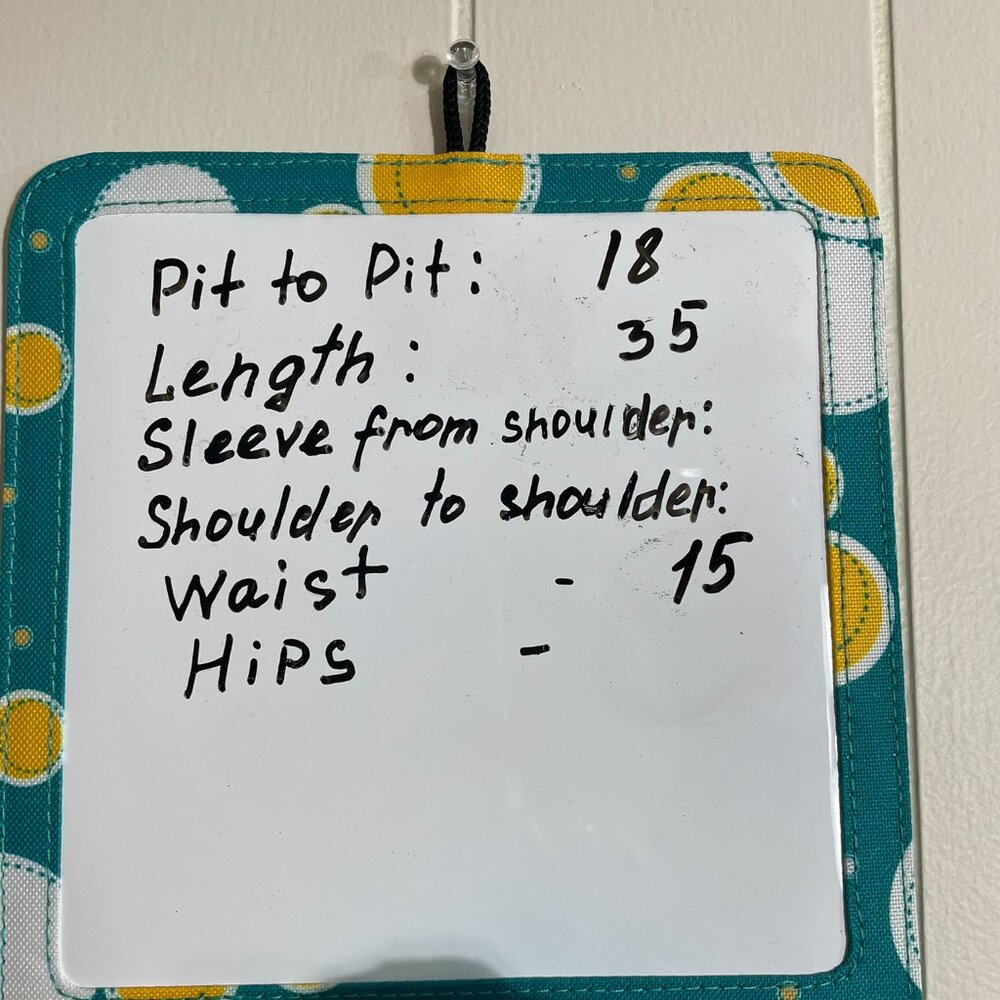 Pit to Pit: 18
Length: 35
Sleeve from shoulder:
Shoulder to shoulder:
Waist - 15
Hips -